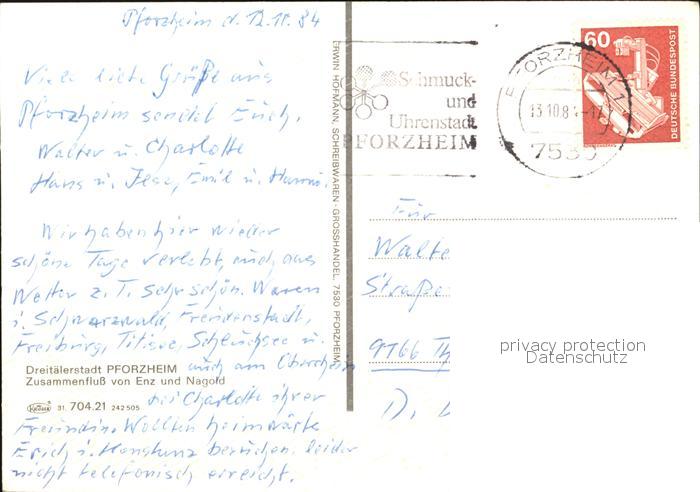 Pforzheim d. 12.10.84
Viele liebe Grüße aus
Pforzheim sendet Euch,
Walter u. Charlotte
Hans u. Ilse, Emil u. Hanni.
Wir haben hier wieder
schöne Tage verlebt, auch das
Wetter z. T. sehr schön. Waren
i. Schwarzwald, Freudenstadt,
Freiburg, Titisee, Schluchsee u.
auch am Oberrhein
bei Charlotte ihrer
Freundin. Wollten heimwärts
Erich i. Konstanz besuchen, leider
nicht telefonisch erreicht.
Dreitälerstadt PFORZHEIM
Zusammenfluß von Enz und Nagold
31. 704.21 242 505
ERWIN HOFMANN, SCHREIBWAREN-GROSSHANDEL, 7530 PFORZHEIM
Schmuck-
und
Uhrenstadt
PFORZHEIM
PFORZHEIM 1
13.10.8
7530
60
DEUTSCHE BUNDESPOST
Für
Walte
Straße
9166 Th
D.
privacy protection
Datenschutz